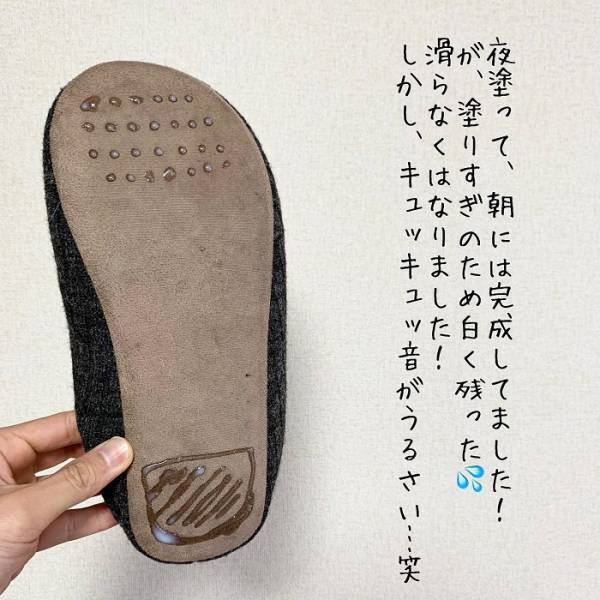 夜塗って、朝には完成してました！
が、塗りすぎのため白く残った💦
滑らなくはなりました！
しかし、キュッキュッ音がうるさい…笑